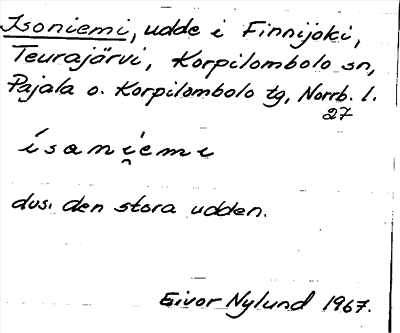 Isoniemi, udde i Finnijoki,
Teurajärvi, Korpilombolo sn,
Pajala o. Korpilombolo tg, Norrb. l.
27
ísani̯emi
dvs. den stora udden.
Eivor Nylund 1967.